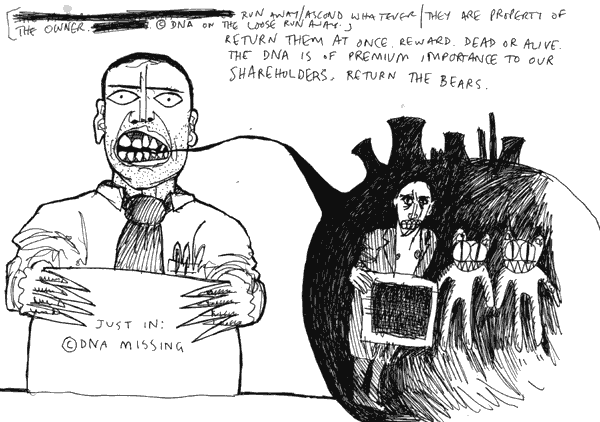 OF RUN AWAY/ASCOND WHATEVER/THEY ARE PROPERTY OF
THE OWNER. © DNA ON THE LOOSE RUN AWAY.
RETURN THEM AT ONCE. REWARD. DEAD OR ALIVE.
THE DNA IS OF PREMIUM IMPORTANCE TO OUR
SHAREHOLDERS. RETURN THE BEARS.
JUST IN:
© DNA MISSING